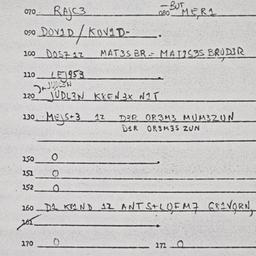 070 RAJC3 080 -BUT MER1
090 DOV1D / KOV1D-.
100 DOST 12 MAT3SBR = MAT1S3S BRUD1R
110 LEJ953
120 JUDL3N KKEN3X N1T
130 MEJS+3 12 D3R OR3M3 MUM3ZUN
D3R OR3M3S ZUN
150 0
151 0
152 0
160 D1 K1ND 12 ANTS+LOFM7 G31VORN,
161
170 0 171 0